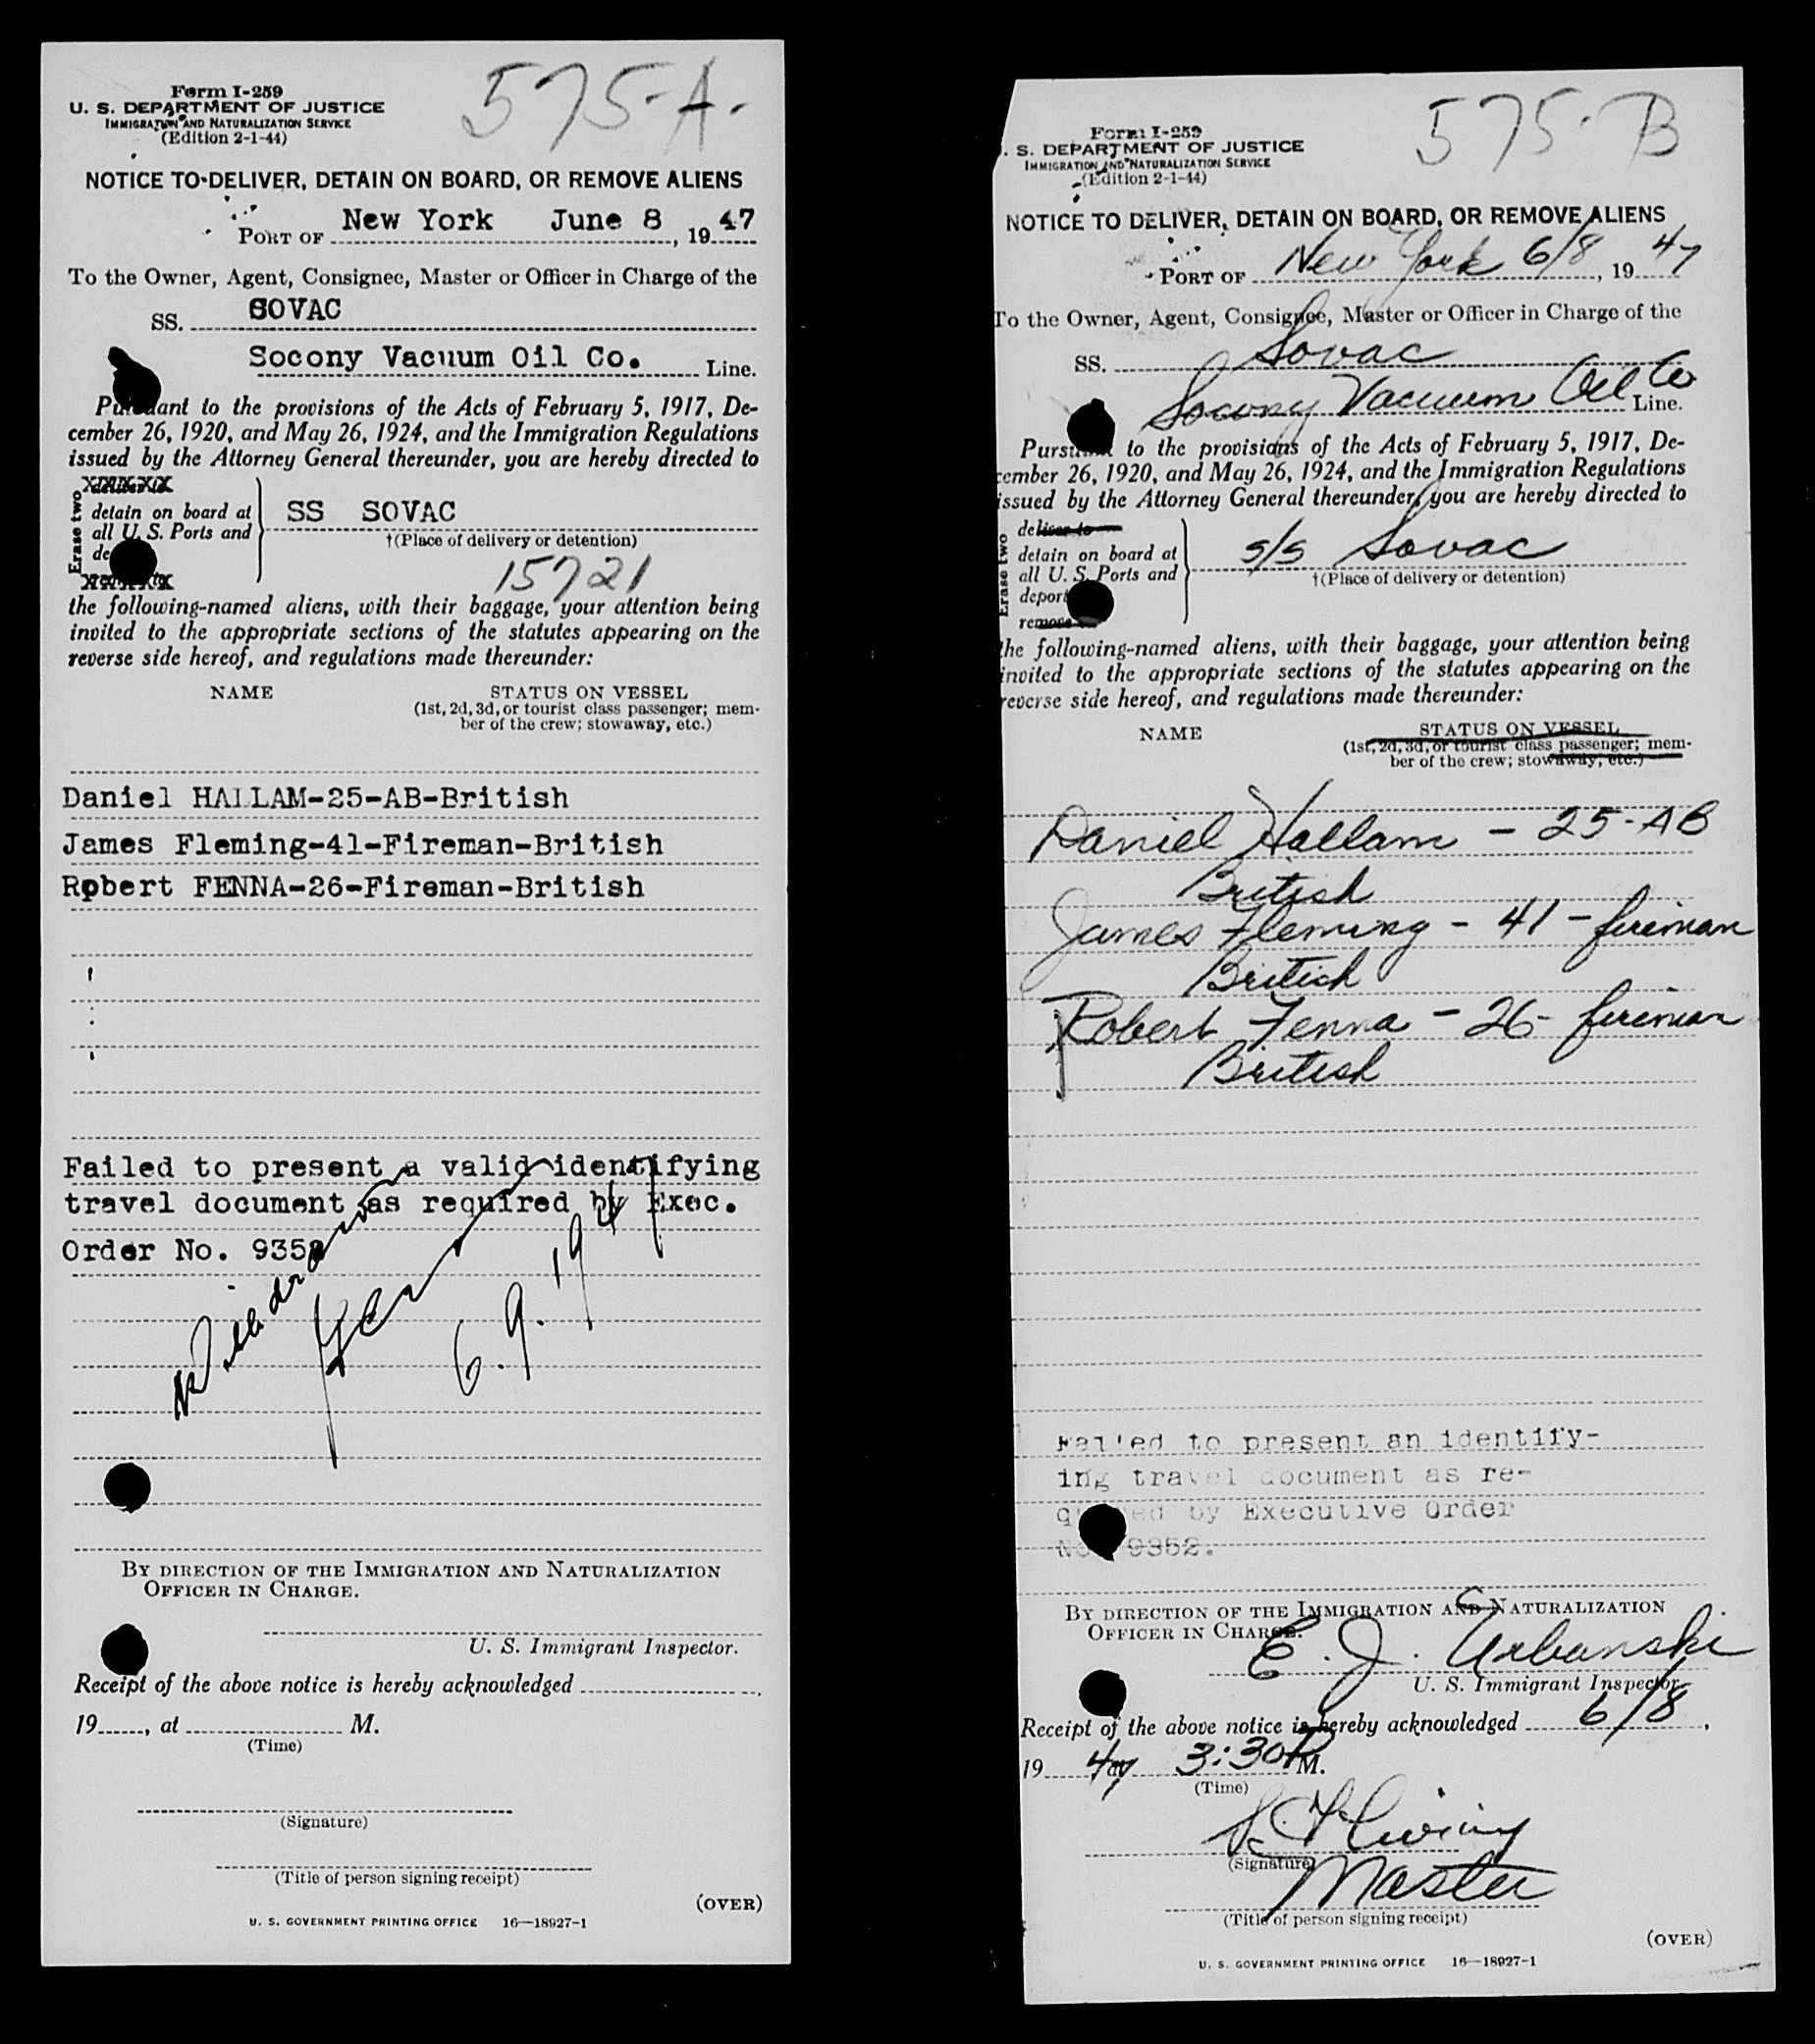 575-A.
Form I-259
U. S. DEPARTMENT OF JUSTICE
IMMIGRATION AND NATURALIZATION SERVICE
(Edition 2-1-44)
NOTICE TO DELIVER, DETAIN ON BOARD, OR REMOVE ALIENS
PORT OF New York June 8, 1947
To the Owner, Agent, Consignee, Master or Officer in Charge of the
SS. SOVAC
Socony Vacuum Oil Co. Line.
Pursuant to the provisions of the Acts of February 5, 1917, De-
cember 26, 1920, and May 26, 1924, and the Immigration Regulations
issued by the Attorney General thereunder, you are hereby directed to
Erase two
deliver to
detain on board at
all U. S. Ports and
SS SOVAC
†(Place of delivery or detention)
15721
the following-named aliens, with their baggage, your attention being
invited to the appropriate sections of the statutes appearing on the
reverse side hereof, and regulations made thereunder:
NAME STATUS ON VESSEL
(1st, 2d, 3d, or tourist class passenger; mem-
ber of the crew; stowaway, etc.)
Daniel HALLAM-25-AB-British
James Fleming-41-Fireman-British
Robert FENNA-26-Fireman-British
Failed to present a valid identifying
travel document as required by Exec.
Order No. 9352
6.9.1947
BY DIRECTION OF THE IMMIGRATION AND NATURALIZATION
OFFICER IN CHARGE.
U. S. Immigrant Inspector.
Receipt of the above notice is hereby acknowledged
19, at M.
(Time)
(Signature)
(Title of person signing receipt)
(OVER)
U. S. GOVERNMENT PRINTING OFFICE 16—18927-1
575-B
Form I-259
. S. DEPARTMENT OF JUSTICE
IMMIGRATION AND NATURALIZATION SERVICE
(Edition 2-1-44)
NOTICE TO DELIVER, DETAIN ON BOARD, OR REMOVE ALIENS
PORT OF New York 6/8, 1947
To the Owner, Agent, Consignee, Master or Officer in Charge of the
SS. Sovac
Socony Vacuum Oil Co Line.
Pursuant to the provisions of the Acts of February 5, 1917, De-
cember 26, 1920, and May 26, 1924, and the Immigration Regulations
issued by the Attorney General thereunder, you are hereby directed to
Erase two
deliver to
detain on board at
all U. S. Ports and
deport
remove to
s/s Sovac
†(Place of delivery or detention)
the following-named aliens, with their baggage, your attention being
invited to the appropriate sections of the statutes appearing on the
reverse side hereof, and regulations made thereunder:
NAME STATUS ON VESSEL
(1st, 2d, 3d, or tourist class passenger; mem-
ber of the crew; stowaway, etc.)
Daniel Hallam - 25-AB
British
James Fleming - 41 - fireman
British
Robert Fenna - 26- fireman
British
Failed to present an identify-
ing travel document as re-
quired by Executive Order
No. 9352.
BY DIRECTION OF THE IMMIGRATION AND NATURALIZATION
OFFICER IN CHARGE.
E. J. Urbanski
U. S. Immigrant Inspector.
Receipt of the above notice is hereby acknowledged 6/8,
1947 at 3:30 P.M.
(Time)
(Signature)
Master
(Title of person signing receipt)
(OVER)
U. S. GOVERNMENT PRINTING OFFICE 16—18927-1